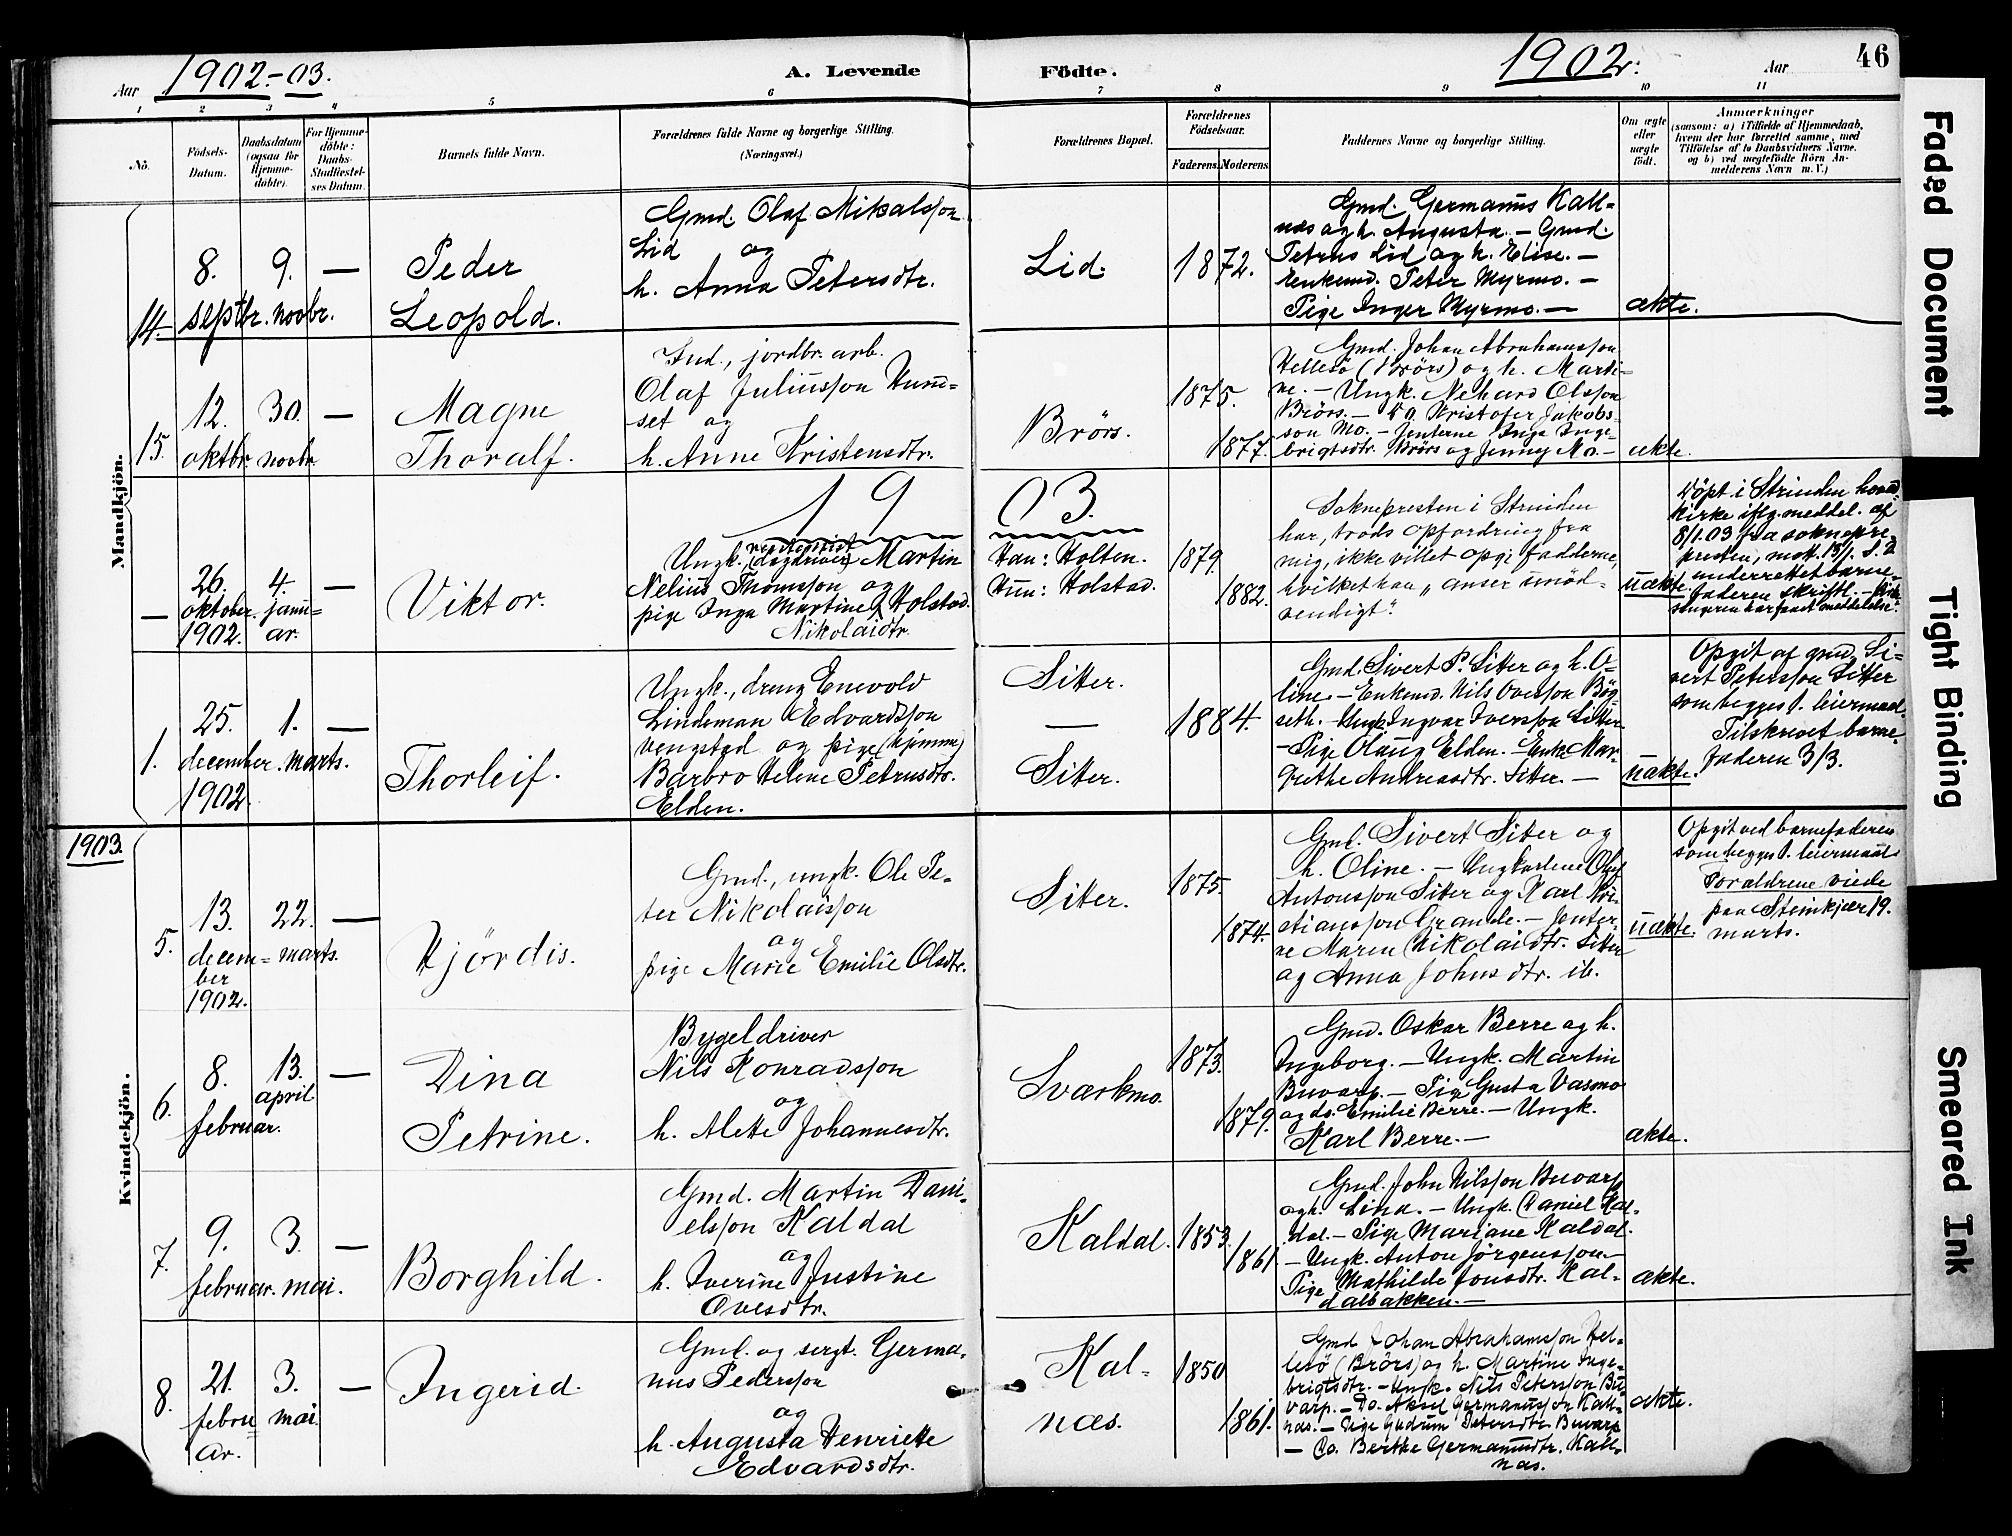 Aar 1902-03. A. Levende
Födte. 1902. Aar 46
1 2 3 4 5 6 7 8 9 10 11
No.
Födsels-
Datum.
Daabsdatum
(ogsaa for
Hjemme-
döbte).
For Hjemme-
döbte:
Daabs-
Stadfæstel-
ses Datum.
Barnets fulde Navn.
Forældrenes fulde Navne og borgerlige Stilling.
(Næringsvei.)
Forældrenes Bopæl.
Forældrenes
Födselsaar.
Faderens. Moderens.
Faddernes Navne og borgerlige Stilling.
Om ægte
eller
uægte
födt.
Anmærkninger
(saasom: a) i Tilfælde af Hjemmedaab,
hvem der har forrettet samme, med
Tilföielse af to Daabsvidners Navne,
og b) ved uægtefödte Börn An-
melderens Navn m. V.)
Mandkjön.
14.
8.
septbr.
9.
novbr.
—
Peder
Leopold.
Gmd. Olaf Mikalsson
Lid og
h. Anna Petersdtr.
Lid.
1872.
Gmd. Germanus Kall-
næs og h. Augusta. — Gmd.
Petrus Lid og h. Elise. —
Enkemd. Peter Myrmo. —
Pige Inger Myrmo. —
ekte.
15.
12.
oktbr.
30.
novbr.
—
Magne
Thoralf.
Ind., jordbr. arb.
Olaf Juliusson Hund-
set og
h. Anne Kristensdtr.
Brörs.
1875.
1877.
Gmd. Johan Abrahamsson
Hellesö (Brörs) og h. Marti-
ne. — Ungk. Nehard Olsson
Brörs. — Do Kristofer Jakobs-
son Mo. — Jenterne Inga Inge-
brigtsdtr. Brörs og Jenny Mo. —
ekte.
1903.
—
26.
oktober
1902.
4.
janu-
ar.
—
Viktor.
Ungk. Martin
Nelius Thomsson og
pige Inga Martine Holstad.
Nikolaidtr.
Han: Holten.
Hun: Holstad.
1879.
1882.
Soknepresten i Strinden
har, trods opfordring fra
mig, ikke villet opgi fadderne,
hvilket han „anser unöd-
vendigt".
uekte.
Döpt i Strinden hoved-
kirke iflg. meddel. af
8/1.03 fra soknepre-
sten, mot. 13/1. S.D
underrettet barne-
faderen skriftl. —
1.
25.
december
1902.
1.
marts.
—
Thorleif.
Ungk., dreng Enevold
Lindeman Edvardsson
Vengstad og pige (hjemme)
Barbro Helene Petrusdtr.
Elden.
Sitter.
—
Sitter.
1884.
Gmd. Sivert P. Sitter og h. O-
line. — Enkemd. Nils Ovesson Bög-
seth. — Ungk. Ingvar Iversson Sitter
— Pige Olaug Elden. — Enke Mar-
grethe Andreasdtr. Sitter. —
uekte.
Opgit af gmd. Si-
vert Petersson Sitter
som begges 1. leiermaal.
Tilskrevet barne-
faderen 3/3.
1903.
Kvindekjön.
5.
13.
decem-
ber
1902.
22.
marts.
—
Hjördis.
Gmd., ungk. Ole Pe-
ter Nikolaisson
og
pige Marie Emilie Olsdtr.
Sitter.
1875.
1874.
Gmd. Sivert Sitter og
h. Oline. — Ungkarlene Olaf
Antonsson Sitter og Karl Kri-
stiansson Grande. — Jenter-
ne Maren Nikolaidtr. Sitter
og Anna Johnsdtr. ib.
uekte.
Opgit ved barnefaderen
som begges 1. leiermaal.
Forældrene viede
paa Steinkjær 19.
marts.
6.
8.
februar.
13.
april
—
Dina
Petrine.
Bygeldriver
Nils Konradsson
og
h. Alette Johannesdtr.
Svarkmo.
1873.
1879.
Gmd. Oskar Berre og h.
Ingeborg. — Ungk. Martin
Buvarp. — Pige Gusta Vasmo
og do. Emilie Berre. — Ungk.
Karl Berre. —
ekte.
7.
9.
februar.
3.
mai.
—
Borghild.
Gmd. Martin Dani-
elsson Kaldal
og
h. Iverine Justine
Ovesdtr.
Kaldal.
1853.
1861.
Gmd. John Nilsson Buvarp
og h. Lina. — Ungk. Daniel Kal-
dal. — Pige Mariane Kaldal.
— Ungk. Anton Jörgensson. —
Pige Mathilde Jonsdtr. Kal-
dalbakken. —
ekte.
8.
21.
febru-
ar.
3.
mai
—
Ingerid.
Gmd. og sergt. Germa-
nus Pedersson
og
h. Augusta Henriette
Edvardsdtr.
Kal-
næs.
1850
1861.
Gmd Johan Abrahamsson Hel-
lesö (Brörs) og h. Martine Inge-
brigtsdtr. — Ungk. Nils Petersson Bu-
varp. — Do. Aksel Germanusson Kall-
næs. — Pige Gudrun Petersdtr. Buvarp
— Do. Berthe Germanusdtr. Kall-
næs.
ekte.
Faded Document
Tight Binding
Smeared Ink